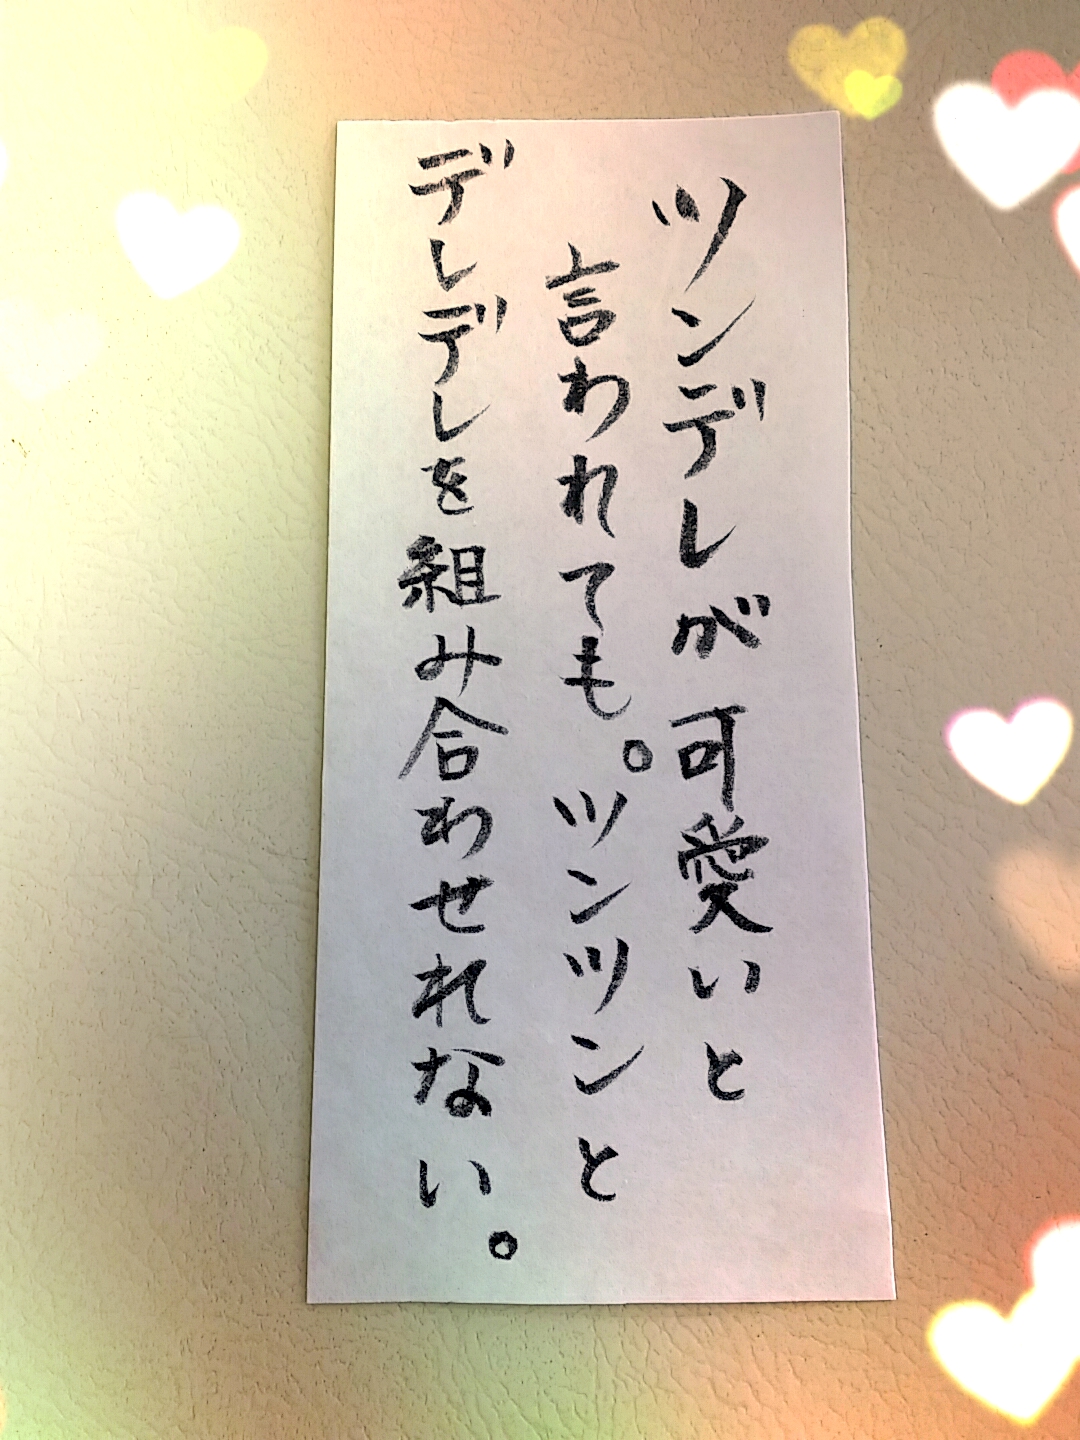 ツンデレが可愛いと
言われても。ツンツンと
デレデレを組み合わせれない。